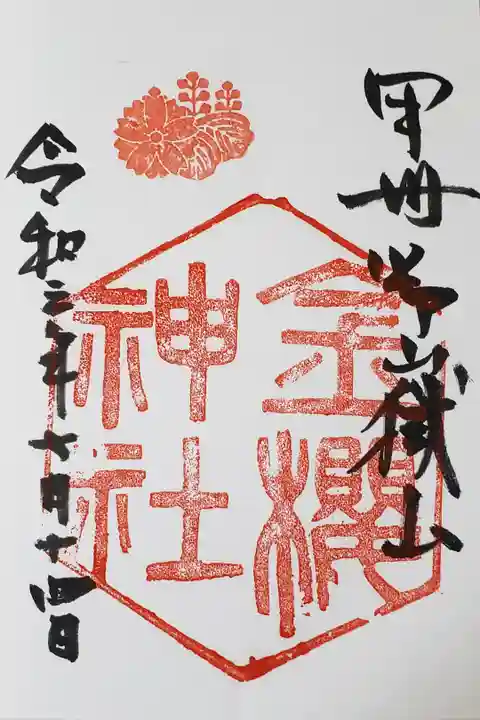 甲州御嶽山
金櫻
神社
令和三年七月十四日